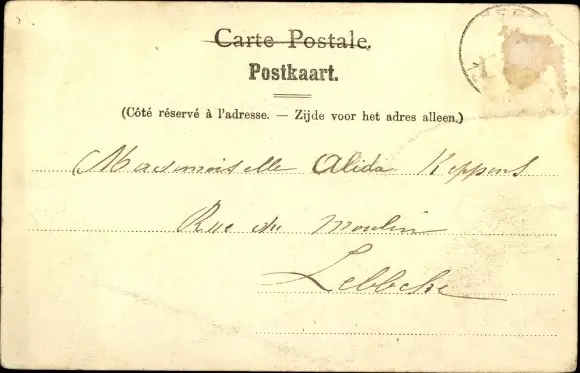 Carte Postale.
Postkaart.
(Côté réservé à l'adresse. — Zijde voor het adres alleen.)
Mademoiselle Alida Keppens
Rue du Moulin
Lebbeke